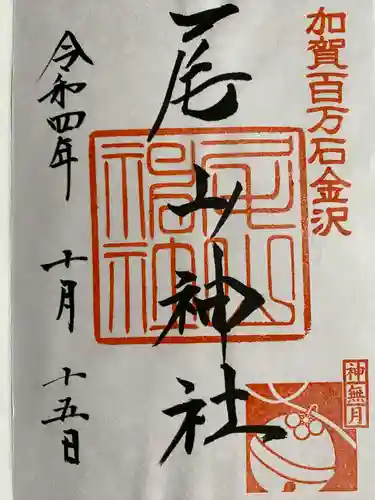 加賀百万石金沢
尾山神社
尾山神社
神無月
令和四年
十月
十五日